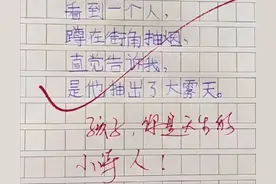 看到一个人，
蹲在街角抽烟，
直觉告诉我，
是他抽出了大雾天。
孩子，你是天生的
小诗人！